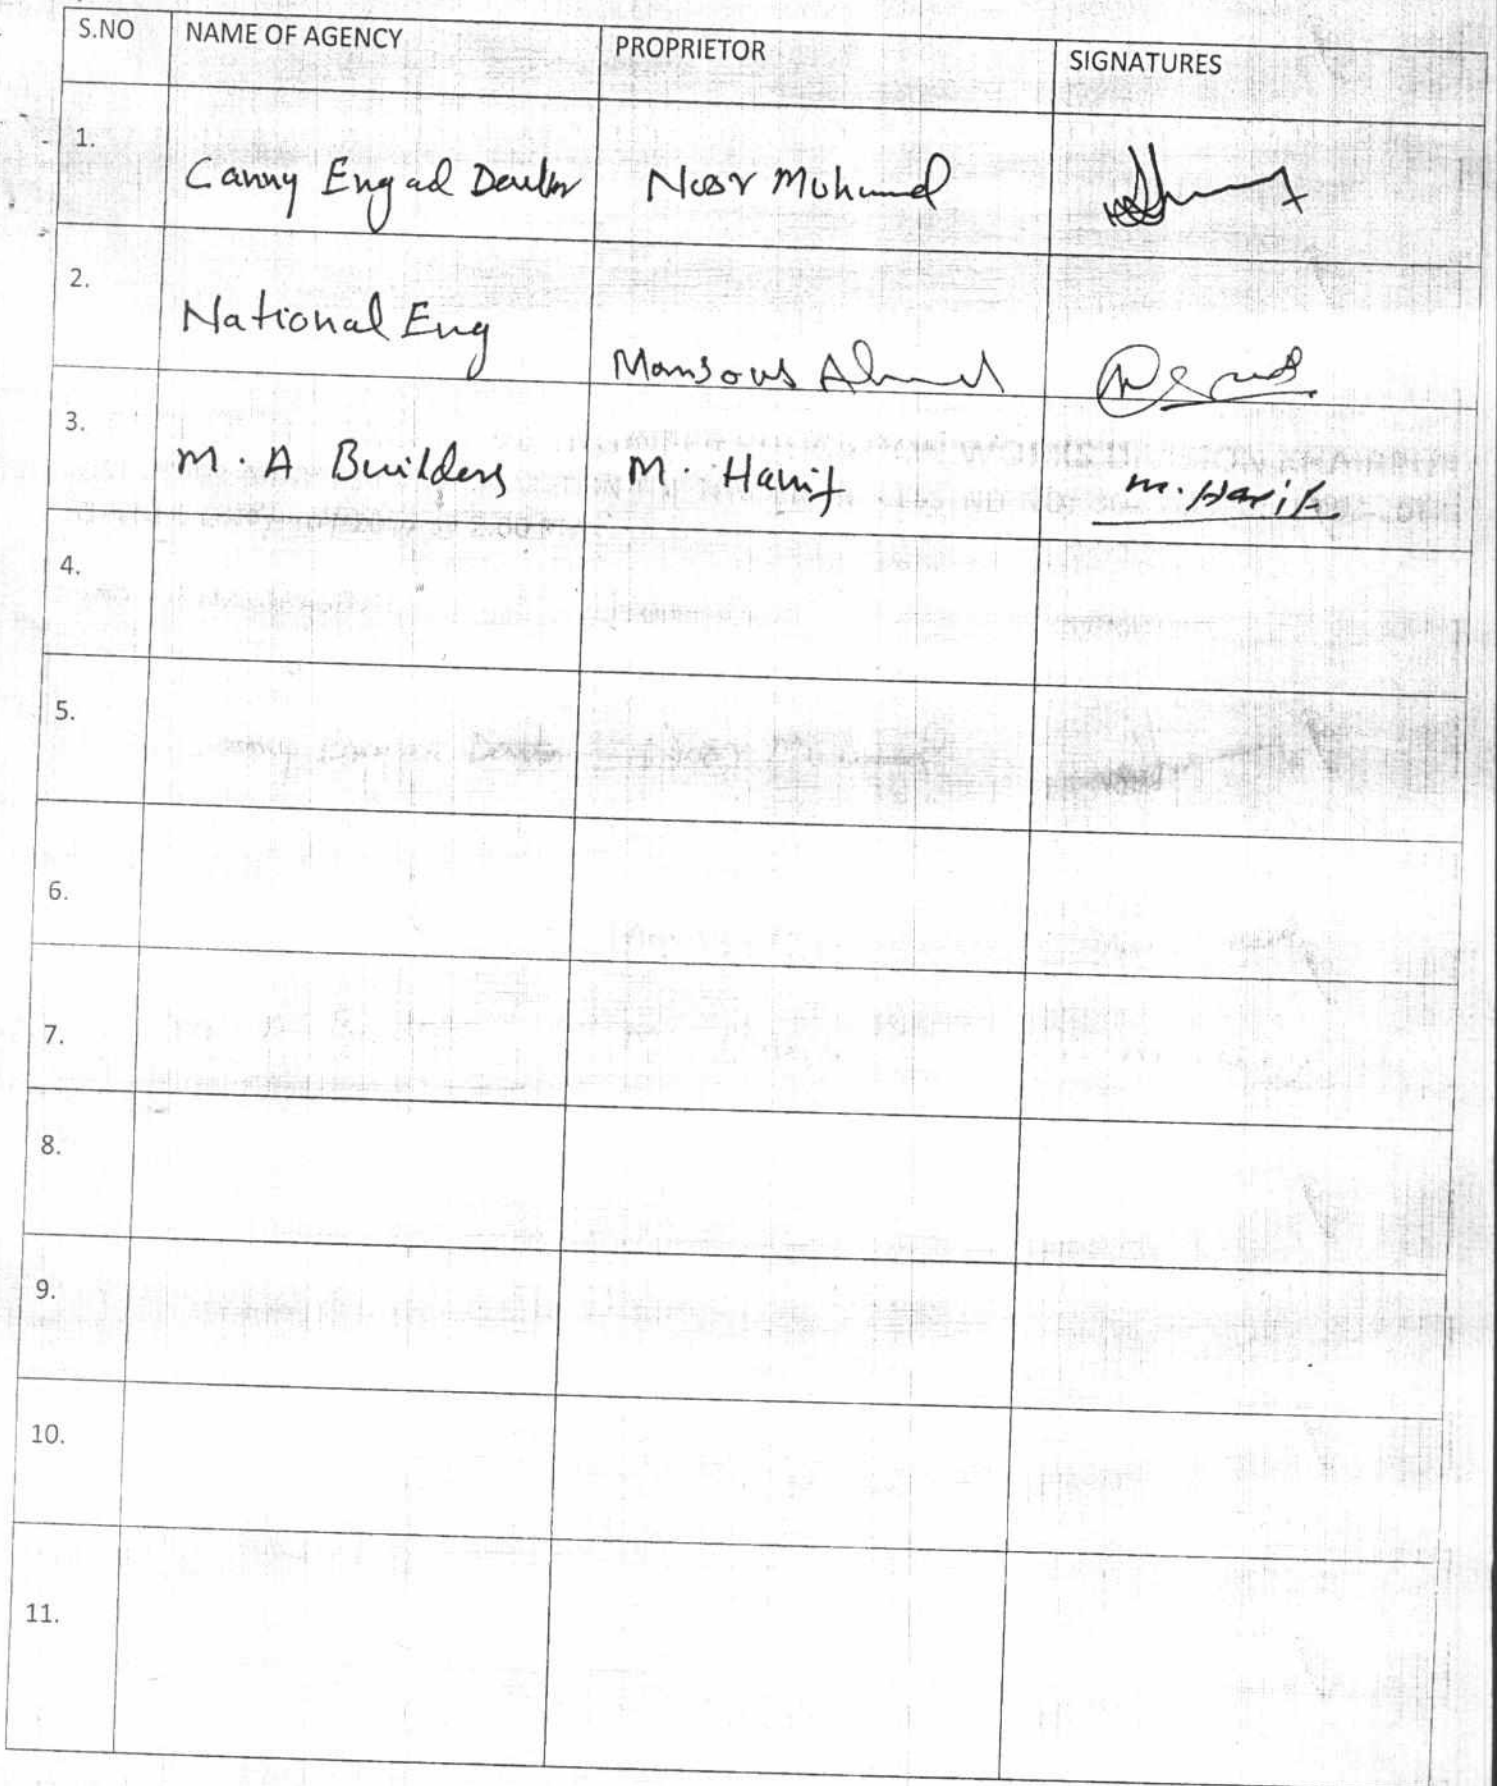 S.NO NAME OF AGENCY PROPRIETOR SIGNATURES
1. Canny Eng ad Noor Mohumd
2. National Eng Mansour Ahmed
3. M. A Builders M. Hanif M. Hanif
4.
5.
6.
7.
8.
9.
10.
11.